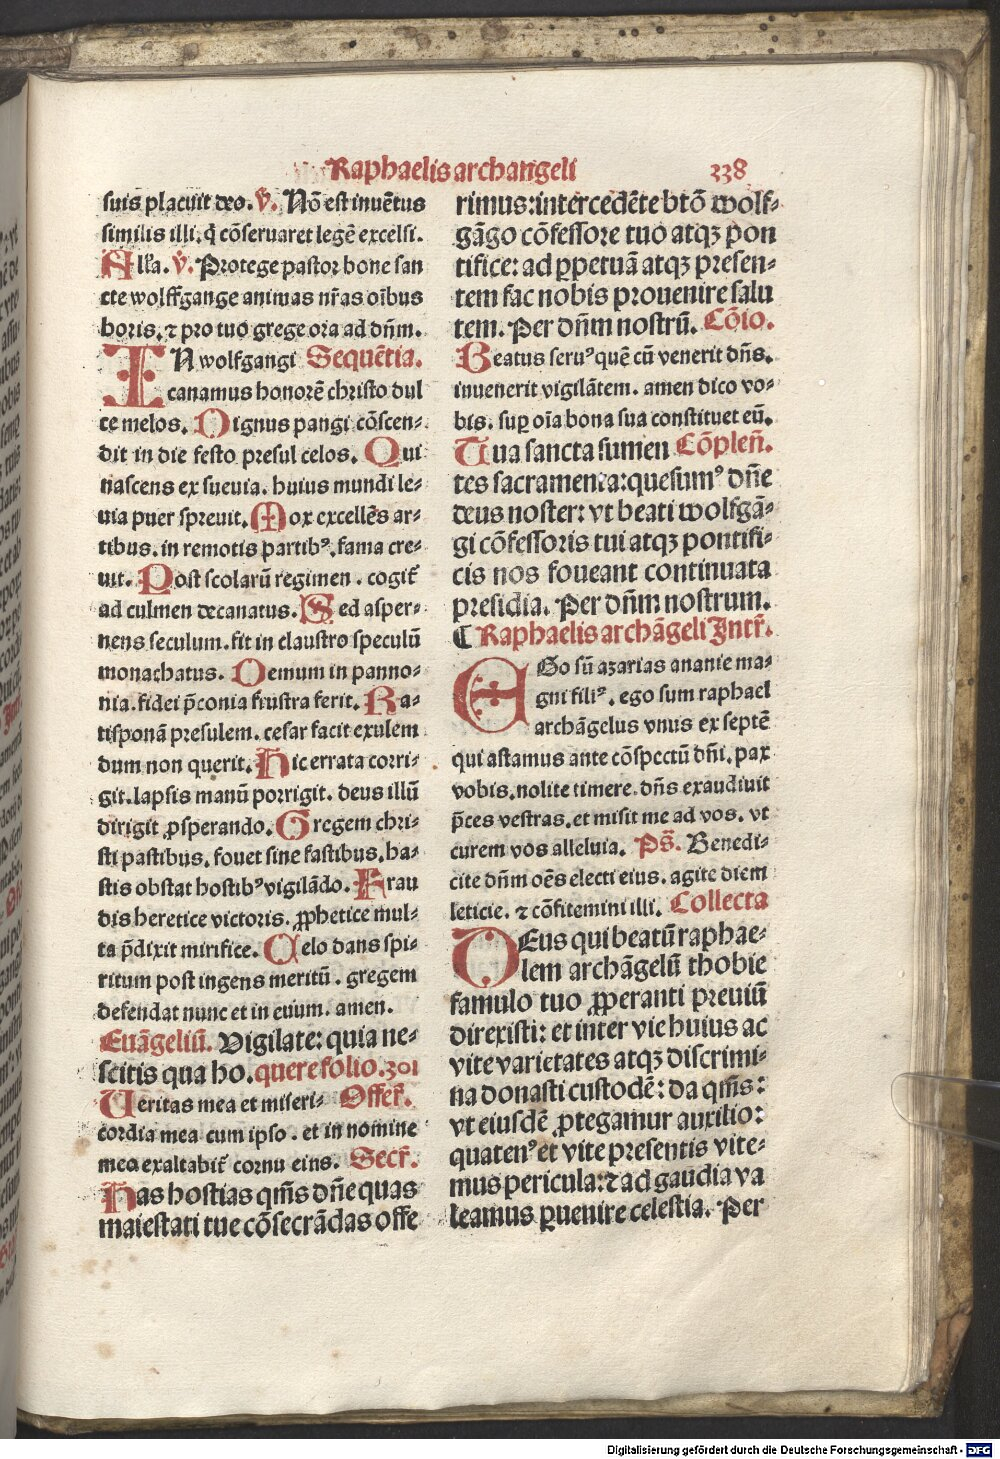 Raphaelis archangeli 338
suis placuit deo. v̄. Nō est inuētus
similis illi. q̄ cōseruaret legē excelsi.
All'a. v̄. Protege pastor bone san
cte wolffgange animas nr̄as oībus
horis. ⁊ pro tuo grege ora ad dn̄m.
IN wolfgangi Sequētia.
canamus honorē christo dul
ce melos. Dignus pangi cōscen⸗
dit in die festo presul celos. Qui
nascens ex sueuia. huius mundi le⸗
uia puer spreuit. Mox excellēs ar⸗
tibus. in remotis partibꝰ. fama cre⸗
uit. Post scolarū regimen. cogit᷑
ad culmen decanatus. Sed asper⸗
nens seculum. fit in claustro speculū
monachatus. Demum in panno⸗
nia. fidei p̄conia frustra ferit. Ra⸗
tisponā presulem. cesar facit exulem
dum non querit. Hic errata corri⸗
git. lapsis manū porrigit. deus illū
dirigit ꝓsperando. Gregem chri⸗
sti pastibus. fouet sine fastibus. ha⸗
stis obstat hostibꝰ vigilādo. Frau
dis heretice victoris. ꝓphetice mul⸗
ta p̄dixit mirifice. Celo dans spi⸗
ritum post ingens meritū. gregem
defendat nunc et in euum. amen.
Euāgeliū. Vigilate: quia ne⸗
scitis qua ho. quere folio. 301
Ueritas mea et miseri⸗ Offer᷑.
cordia mea cum ipso. et in nomine
meo exaltabit᷑ cornu eius. Secr᷑.
Has hostias qm̄s dn̄e quas
maiestati tue cōsecrādas offe
rimus: intercedēte btō wolf⸗
gāgo cōfessore tuo atqꝫ pon
tifice: ad ꝑpetuā atqꝫ presen⸗
tem fac nobis prouenire salu
tem. Per dn̄m nostrū. Cōio.
Beatus seruꝰ quē cū venerit dn̄s.
inuenerit vigilātem. amen dico vo⸗
bis. suꝑ oīa bona sua constituet eū.
Tua sancta sumen Cōplen̄.
tes sacramenta: quesumꝰ dn̄e
deus noster: vt beati wolfgā⸗
gi cōfessoris tui atqꝫ pontifi⸗
cis nos foueant continuata
presidia. Per dn̄m nostrum.
¶ Raphaelis archāgeli Intr᷑.
EGo sū azarias ananie ma⸗
gni filiꝰ. ego sum raphael
archāgelus vnus ex septē
qui astamus ante cōspectū dn̄i. pax
vobis. nolite timere. dn̄s exaudiuit
p̄ces vestras. et misit me ad vos. vt
curem vos alleluia. Ps̄. Benedi⸗
cite dn̄m oēs electi eius. agite diem
leticie. ⁊ cōfitemini illi. Collecta
DEus qui beatū raphae⸗
lem archāgelū thobie
famulo tuo ꝓperanti preuiū
direxisti: et inter vie huius ac
vite varietates atqꝫ discrimi⸗
na donasti custodē: da qm̄s:
vt eiusdē ꝓtegamur auxilio:
quatenꝰ et vite presentis vite⸗
mus pericula: ⁊ ad gaudia va
leamus ꝑuenire celestia. Per
Digitalisierung gefördert durch die Deutsche Forschungsgemeinschaft - DFG